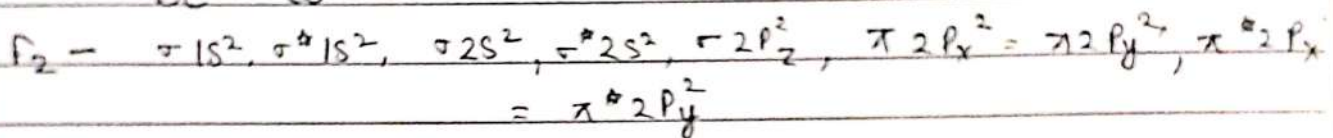 F₂ - σ1S², σ*1S², σ2S², σ*2S², σ2P²z, π2Px² = π2Py², π*2Px
= π*2Py²